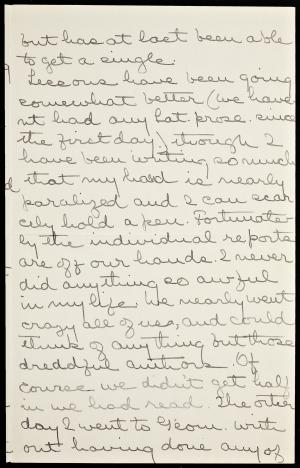 but has at last been able
to get a single.
Lessons have been going
somewhat better (we have
nt had any Lat. prose. since
the first day) though I
have been writing so much
that my hand is nearly
paralized and I can scar
cily hold a pen. Fortunate
ly the individual reports
are off our hands. I never
did anything so awful
in my life. We nearly went
crazy all of us, and could
think of anything but those
dreddful authors. Of
course we didn't get half
in we had read. The other
day I went to Geom. with
out having done any of